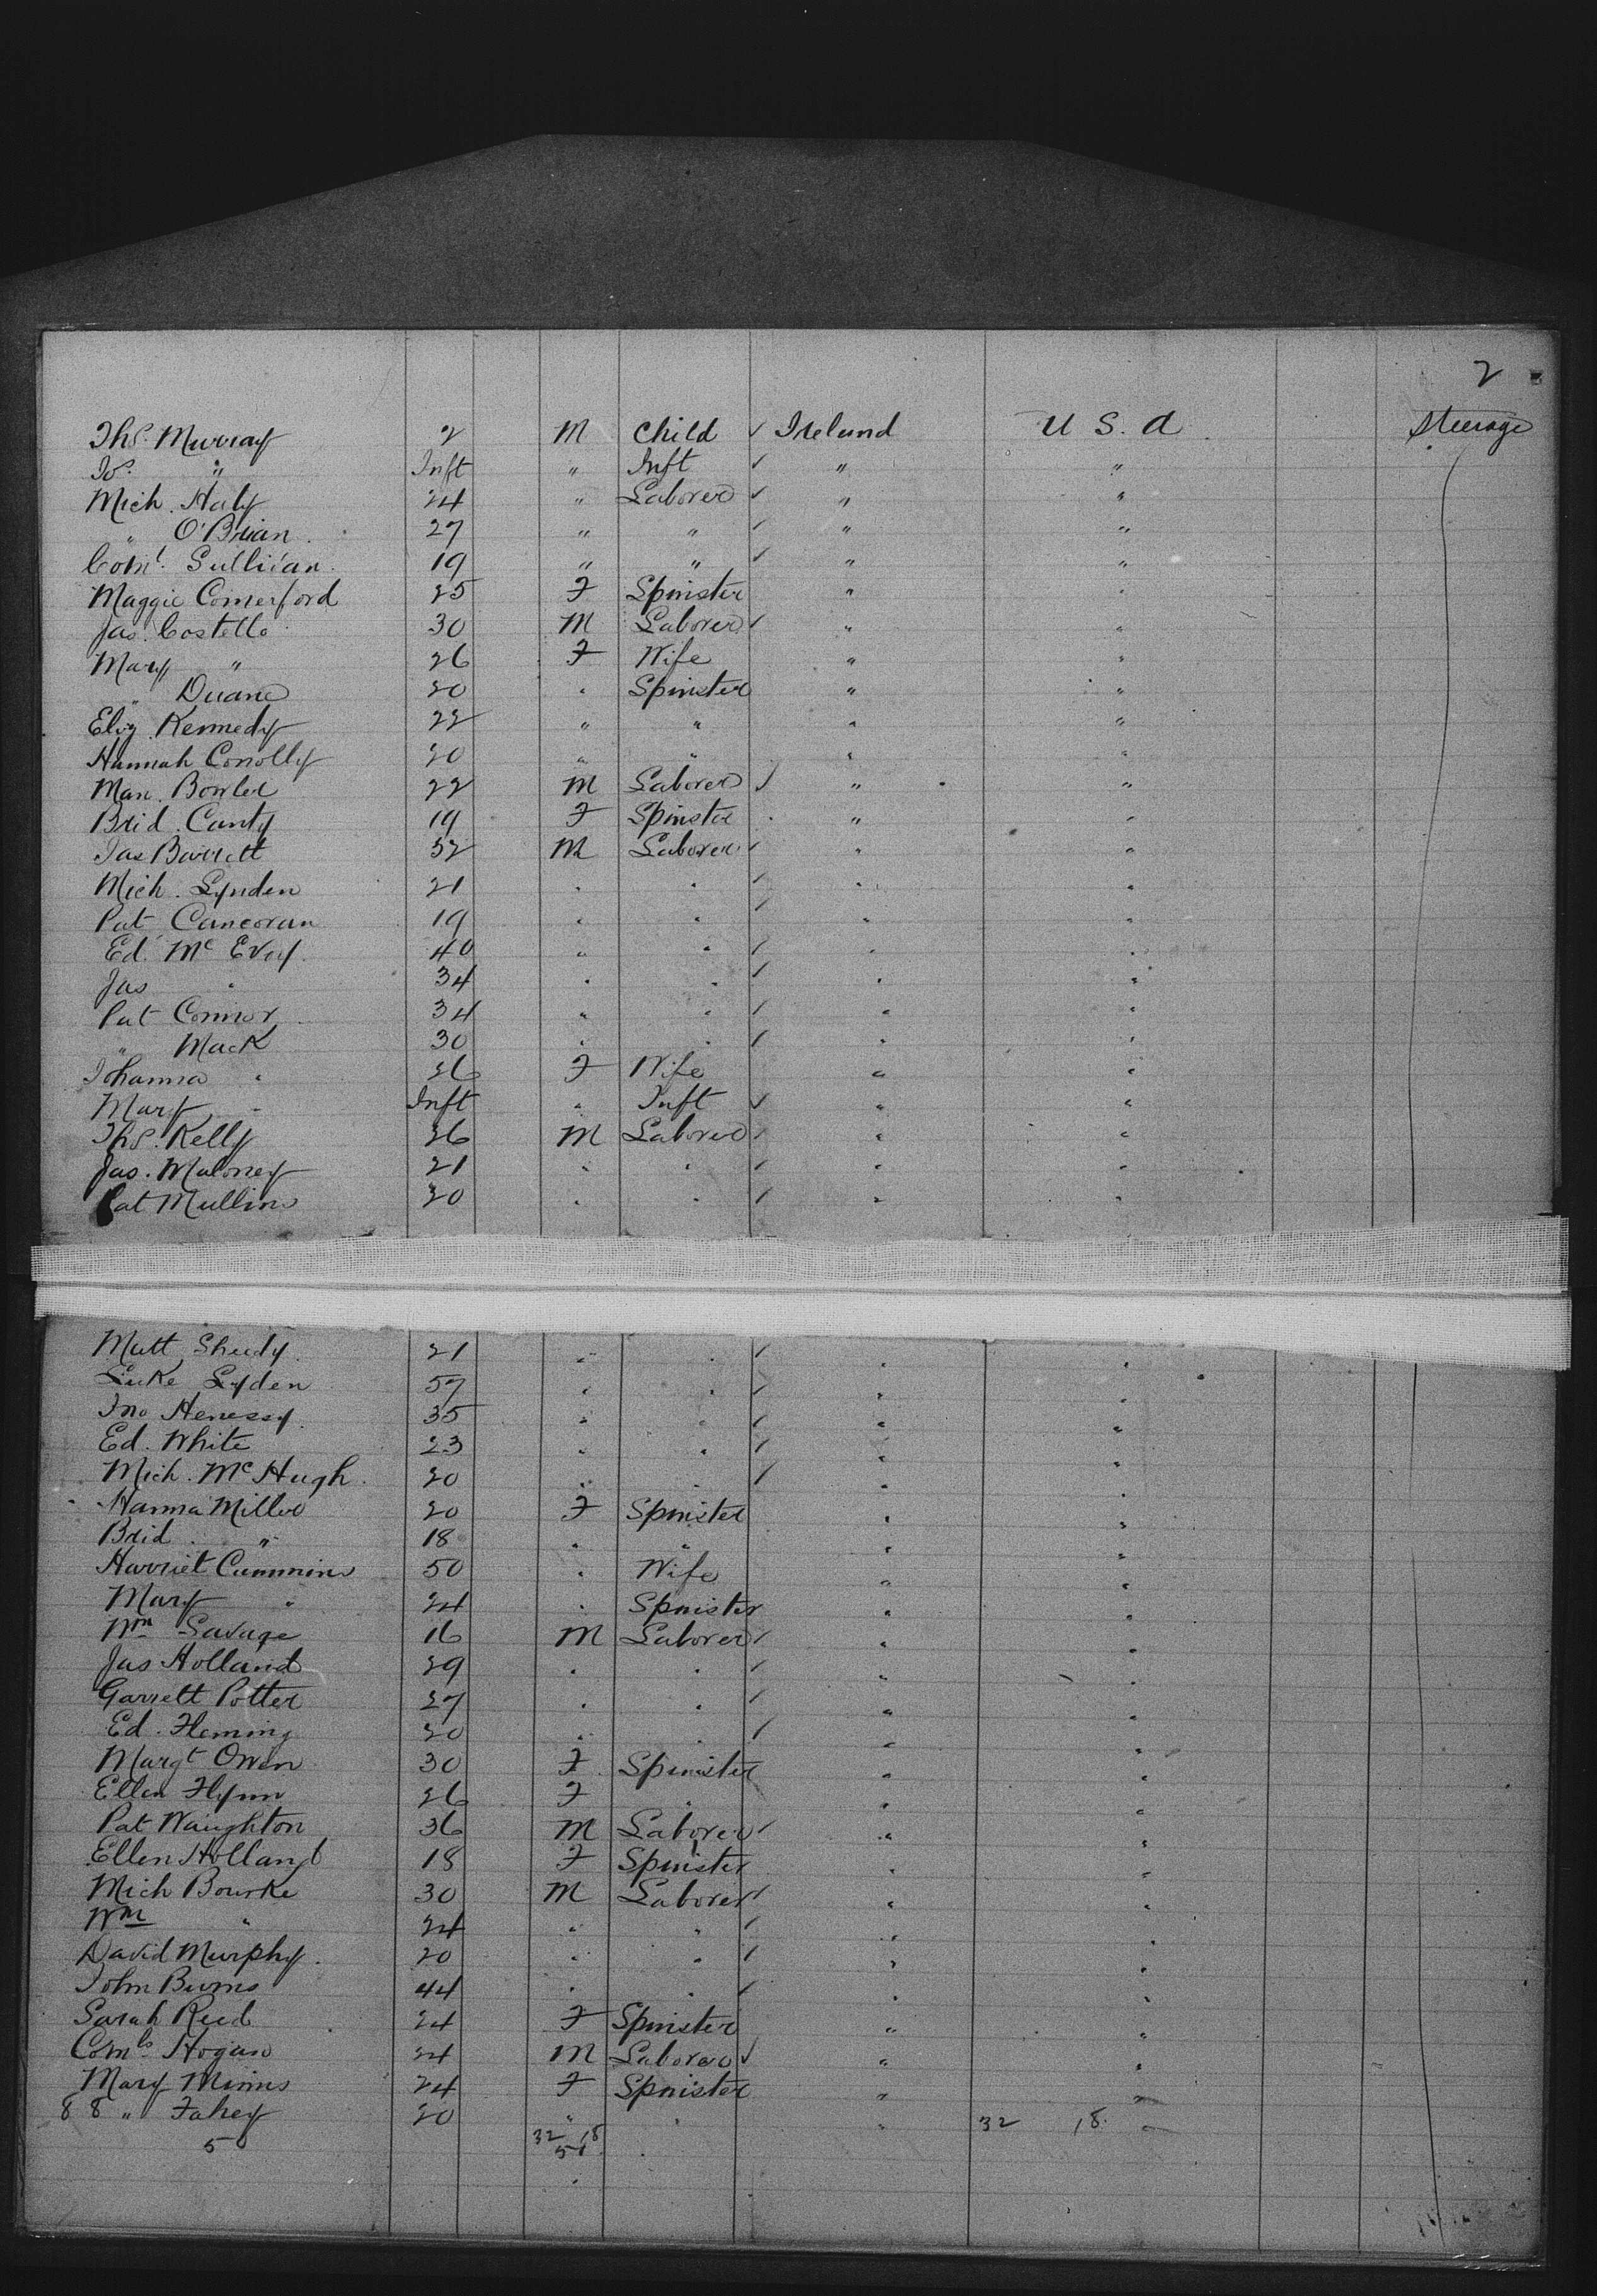 2
Ths. Murray 2 M Child ✓ Ireland U S. A Steerage
Jos. " Inft " Inft ✓ " "
Mich. Haly 24 " Laborer ✓ " "
" O'Brian. 27 " " ✓ " "
Corn<sup>l</sup>. Sullivan. 19 " " ✓ " "
Maggie Comerford 25 F Spinster " "
Jas. Costello 30 M Laborer ✓ " "
Mary " 26 F Wife " "
" Duane 20 " Spinster " "
Eliz Kennedy 22 " " " "
Hannah Conolly 20 " " " "
Man. Bowler 22 M Laborer ✓ " "
Brid. Canty 19 F Spinster " "
Jas Barrett 52 M Laborer ✓ " "
Mich. Lynden 21 " " ✓ " "
Pat Cancoran 19 " " ✓ " "
Ed. Mc Evoy. 40 " " ✓ " "
Jas " 34 " " ✓ " "
Pat Connor 34 " " ✓ " "
" Mack 30 " " ✓ " "
Johanna " 26 F Wife " "
Mary " Inft " Inft ✓ " "
Ths. Kelly 26 M Laborer ✓ " "
Jas. Maloney 21 " " ✓ " "
Pat Mullins 20 " " ✓ " "
Matt Sheedy. 21 " " ✓ " "
Luke Lyden 57 " " ✓ " "
Jno Henessy. 35 " " ✓ " "
Ed. White 23 " " ✓ " "
Mich. Mc Hugh. 20 " " ✓ " "
Hanna Miller 20 F Spinster " "
Brid. " 18 " " " "
Harriet Cummins 50 " Wife " "
Mary " 24 " Spinster " "
Wm Savage 16 M Laborer ✓ " "
Jas Holland 29 " " ✓ " "
Garrett Potter 27 " " ✓ " "
Ed. Fleming 20 " " ✓ " "
Margt Owen 30 F Spinster " "
Ellen Flynn 26 F " " "
Pat Naughton 36 M Laborer ✓ " "
Ellen Holland 18 F Spinster " "
Mich Bourke 30 M Laborer ✓ " "
Wm " 24 " " ✓ " "
David Murphy. 20 " " ✓ " "
John Burns 44 " " ✓ " "
Sarah Reed 24 F Spinster " "
Corn<sup>ls</sup> Hogan 24 M Laborer ✓ " "
Mary Minns 24 F Spinster " "
88 " Fahey 20 " " " 32 18 "
50 32 18
51